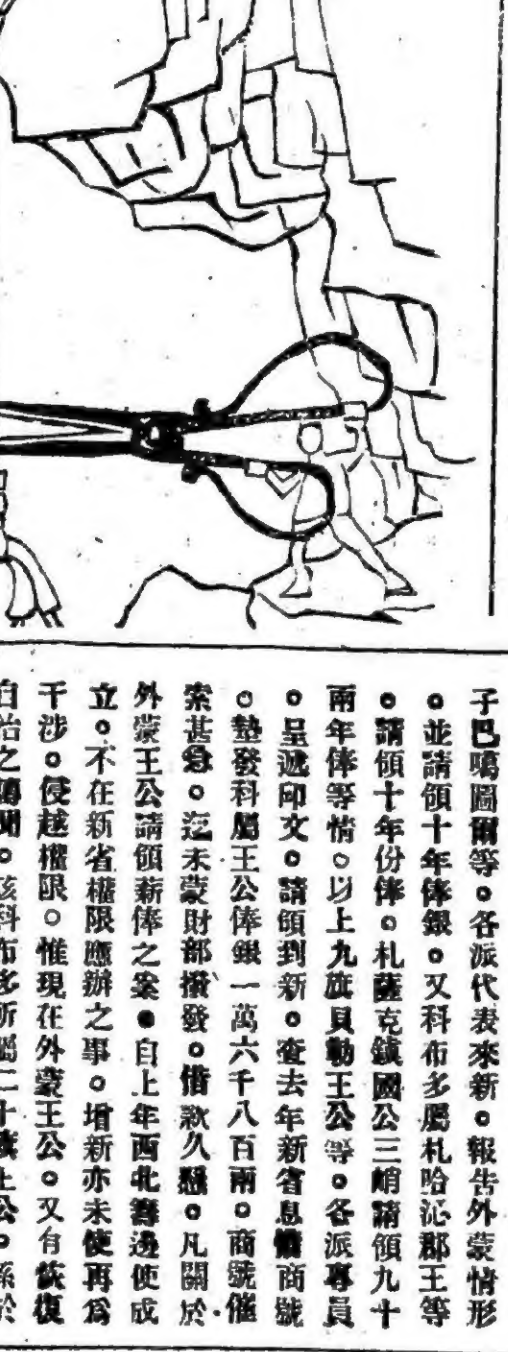 子巴噶圖爾等。各派代表來新。報告外蒙情形
。並請領十年俸銀。又科布多屬札哈沁郡王等
。請領十年份俸。札薩克鎮國公三 請領九十
兩年俸等情。以上九旗貝勒王公等。各派專員
。呈遞印文。請領到新。查去年新省息借商號
。墊發科屬王公俸銀一萬六千八百兩。商號催
索甚急。迄未蒙財部撥發。借款久懸。凡關於
外蒙王公請領薪俸之案。自上年西北籌邊使成
立。不在新省權限應辦之事。增新亦未便再為
干涉。侵越權限。惟現在外蒙王公。又有恢復
自治之 聞。該科布多所屬二十 王公。係於